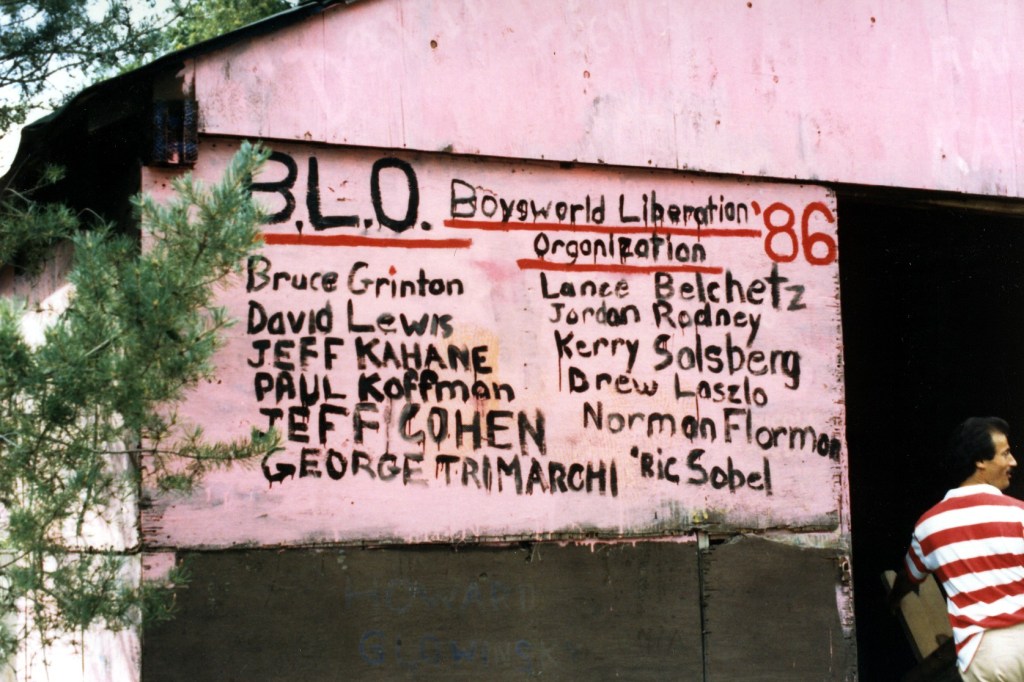 B.L.O. Boysworld Liberation '86
Organization
Bruce Grinton
David Lewis
JEFF KAHANE
PAUL Koffman
JEFF COHEN
GEORGE TRIMARCHI
Lance Belchetz
Jordan Rodney
Kerry Solsberg
Drew Laszlo
Norman Florman
Ric Sobel
HOWARD